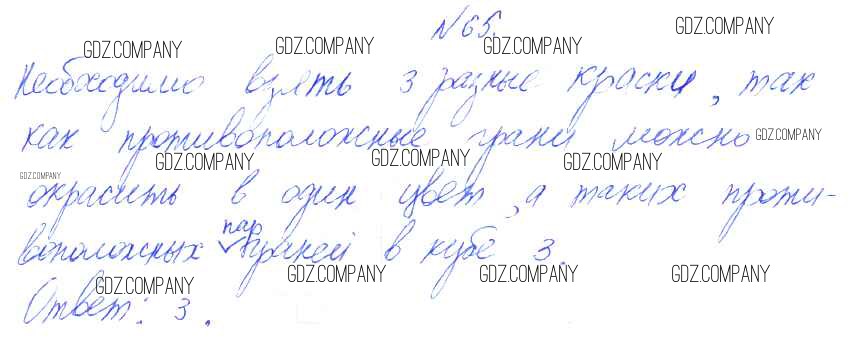 №65.
Необходимо взять 3 разные краски, так
как противоположные грани можно
окрасить в один цвет, а таких проти-
воположных пар граней в кубе 3.
Ответ: 3.
GDZ.COMPANY
GDZ.COMPANY
GDZ.COMPANY
GDZ.COMPANY
GDZ.COMPANY
GDZ.COMPANY
GDZ.COMPANY
GDZ.COMPANY
GDZ.COMPANY
GDZ.COMPANY
GDZ.COMPANY
GDZ.COMPANY
GDZ.COMPANY